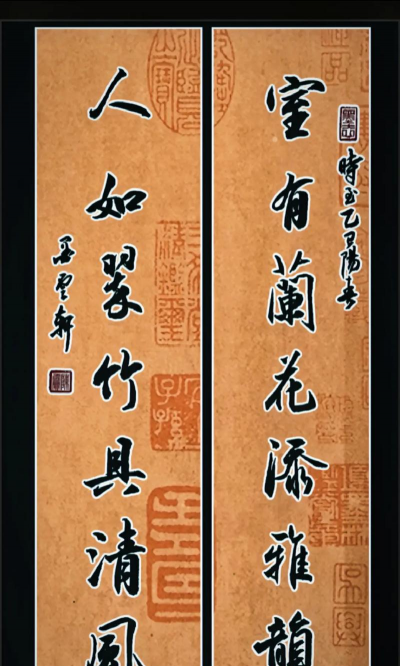 室有蘭花添雅韻
時至乙巳陽春
人如翠竹具清風
墨雲軒